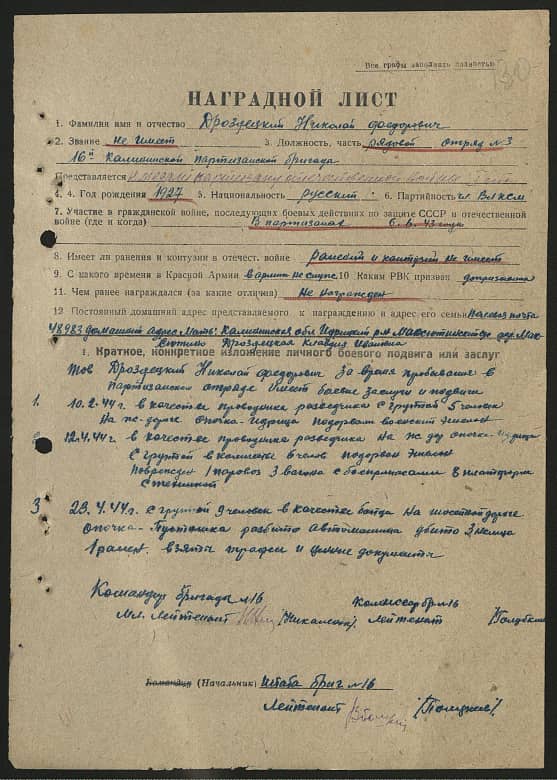 Все графы заполнять полностью
130
НАГРАДНОЙ ЛИСТ
1. Фамилия имя и отчество Дроздецкий Николай Федорович
2. Звание не имеет 3. Должность, часть рядовой отряд №3
16й Калининской партизанской бригады
Представляется к медали партизану отечественной войны
4. 4. Год рождения 1927 5. Национальность русский 6. Партийность чл Влксм
7. Участие в гражданской войне, последующих боевых действиях по защите СССР и отечественной
войне (где и когда) В партизанах 43 года
8. Имеет ли ранения и контузии в отечест. войне Ранений и контузий не имеет
9. С какого времени в Красной Армии в армии не служ. 10 Каким РВК призван допризывник
11. Чем ранее награждался (за какие отличия) Не награжден
12 Постоянный домашний адрес представляемого к награждению и адрес его семьи Полевая почта
48983 домашний адрес Мать: Калининская обл Идрицкий р-н Максютинский с/с дер. Мак-
сютино Дроздецкая Клавдия Ивановна
I. Краткое, конкретное изложение личного боевого подвига или заслуг
Тов Дроздецкий Николай Федорович За время пребывания в
Партизанском отряде Имеет боевые заслуги и подвиги
1. 10.2.44г. в качестве проводника разведчика с группой 5 человек
На ж-дороге опочка-идрица подорвали воинский эшелон
12.4.44г. в качестве проводника разведчика На ж/д опочка-идрица
с группой в количестве 6 челов подорван эшелон
Поврежден 1 паровоз 3 вагона с боеприпасами 8 платформ
с техникой
3 23.4.44г. с группой 9 человек в качестве бойца На шоссейной дороге
опочка-Пустошка разбито автомашина убито 3 немца
1 ранен. взяты трофеи и ценные документы
Командир бригады №16 Комиссар бр №16
Мл. Лейтенант Лейтенант
Командир (Начальник) Штаба Бриг №16
Лейтенант